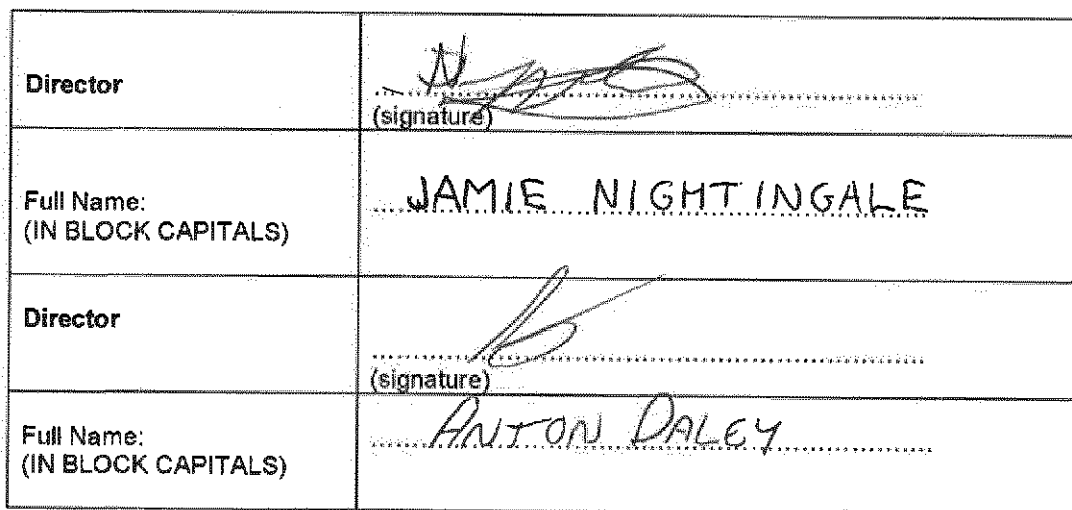 Director
(signature)
Full Name:
(IN BLOCK CAPITALS)
JAMIE NIGHTINGALE
Director
(signature)
Full Name:
(IN BLOCK CAPITALS)
ANTON DALEY